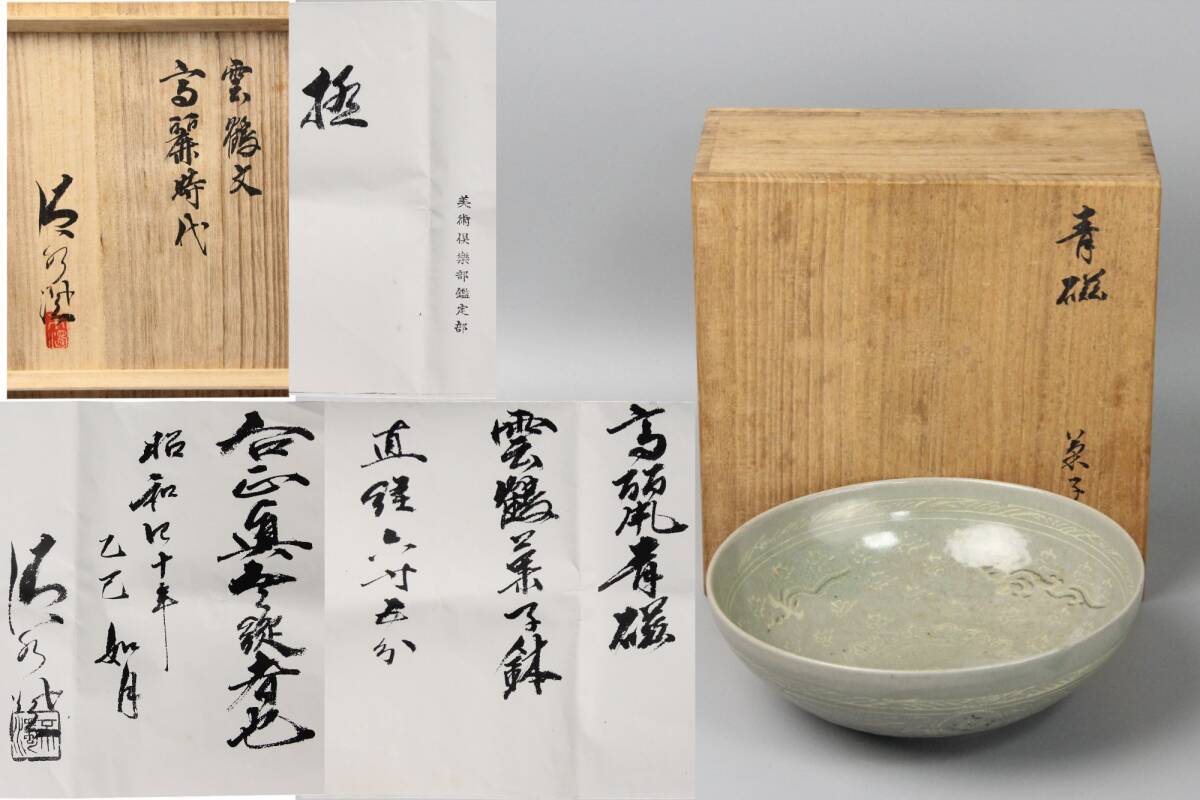 雲鶴文
高麗時代
極
美術倶楽部鑑定部
青磁
菓子
高麗青磁
雲鶴菓子鉢
直経六寸五分
右正真
者也
昭和四十年
乙巳
如月